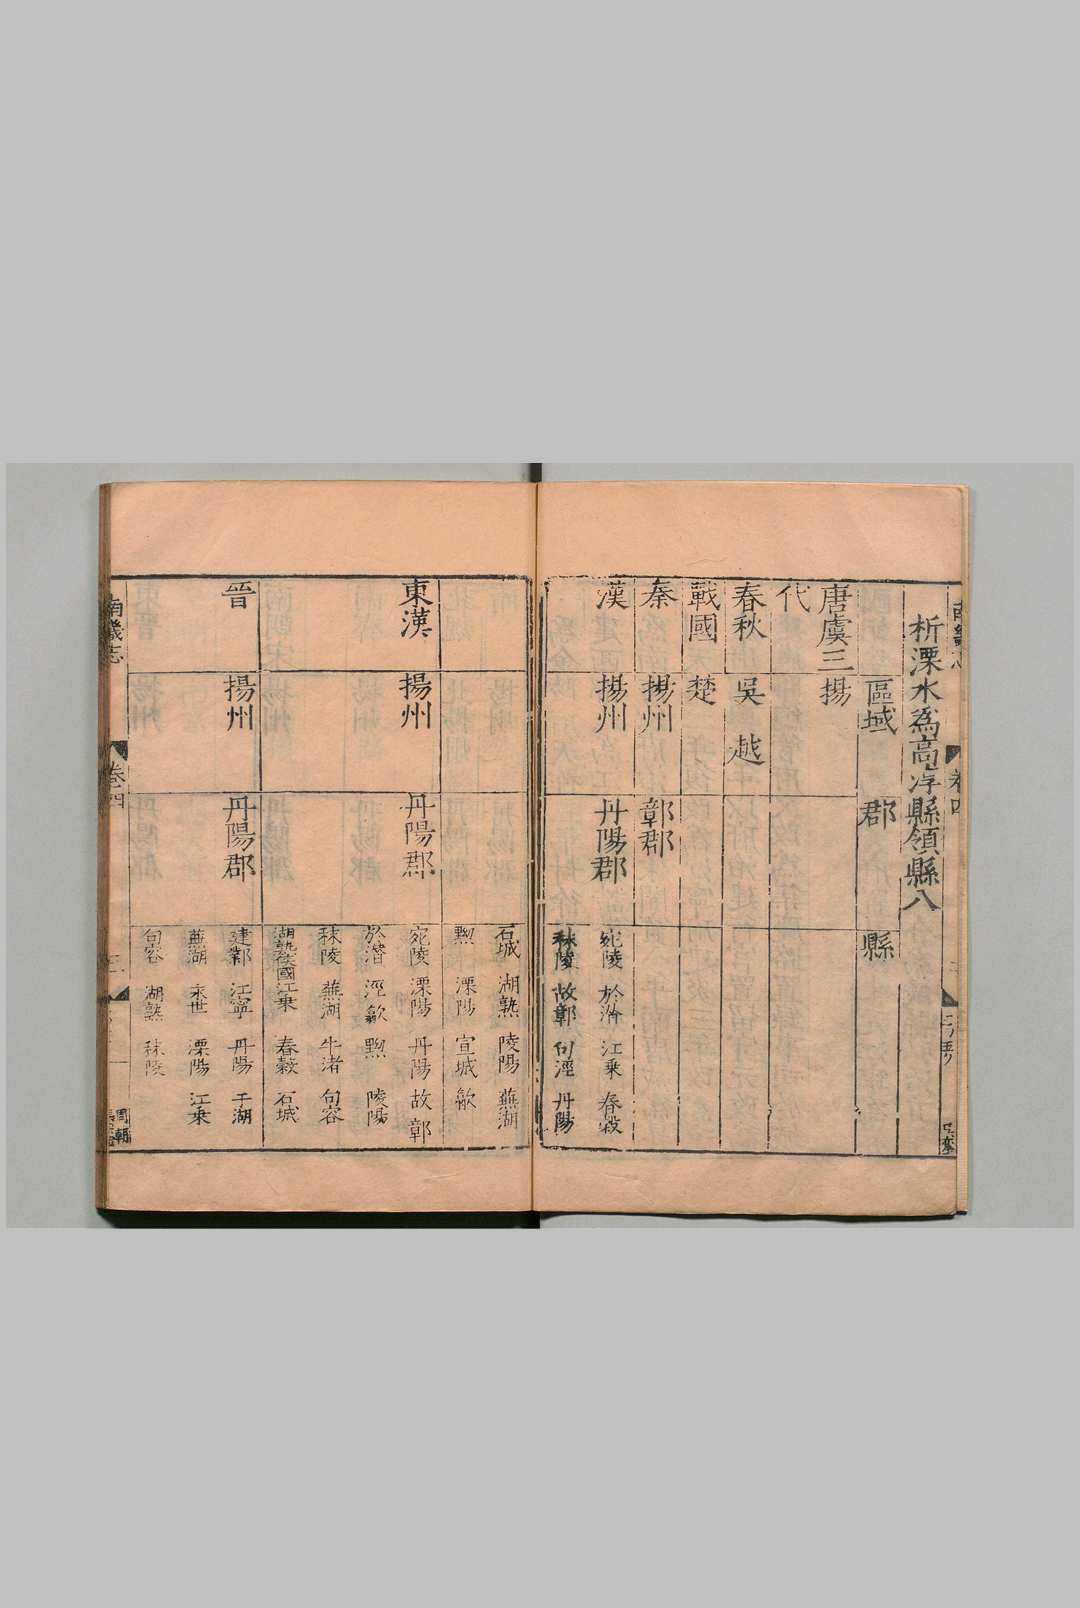 析溧水為高淳縣領縣八
區域 郡 縣
唐虞三 揚
代
春秋 吳 越
戰國 楚
秦 揚州 鄣郡
漢 揚州 丹陽郡 宛陵 於潛 江乗 春穀
秣陵 故鄣 句 涇 丹陽
石城 湖熟 陵陽 蕪湖
黝 溧陽 宣城 歙
東漢 揚州 丹陽郡 宛陵 溧陽 丹陽 故鄣
於潛 涇 歙 黝 陵陽
秣陵 蕪湖 牛渚 句容
湖熟國 江乗 春穀 石城
晉 揚州 丹陽郡 建鄴 江寧 丹陽 于湖
蕪湖 永世 溧陽 江乗
句容 湖熟 秣陵
南畿志 卷四